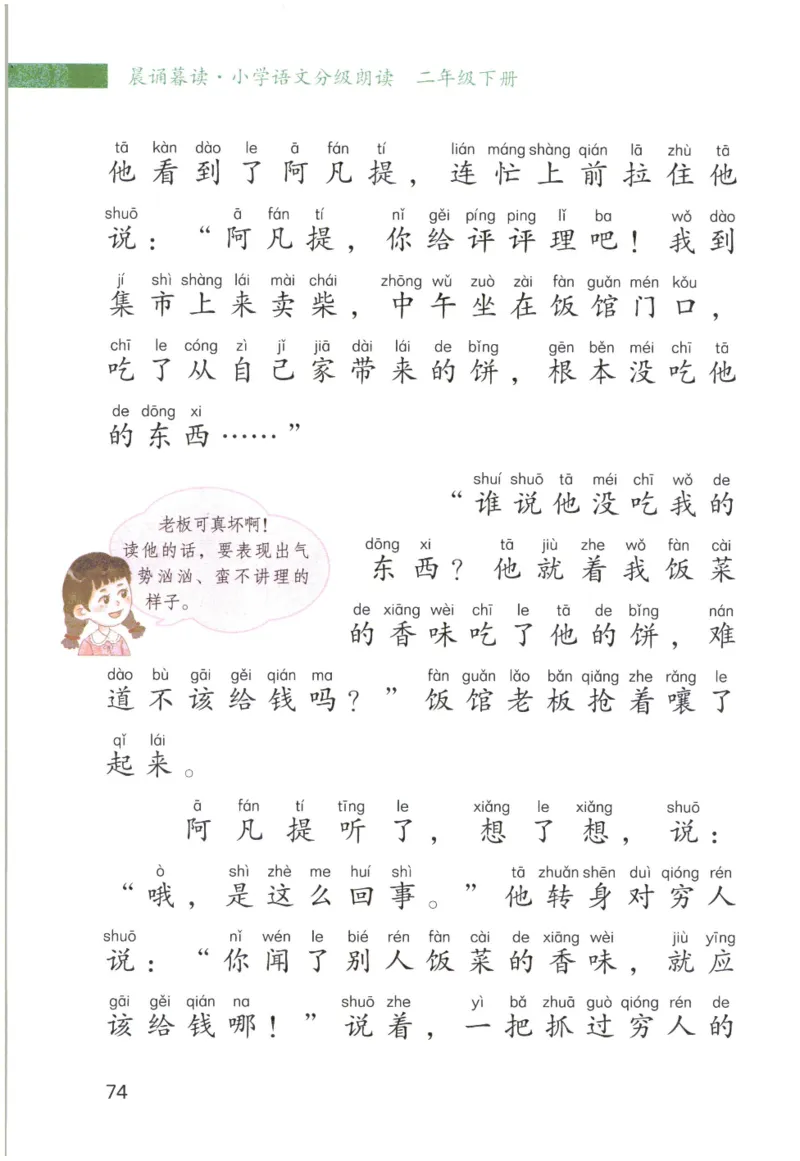 晨诵暮读·小学语文分级朗读 二年级下册
tā kàn dào le ā fán tí lián máng shàng qián lā zhù tā
他看到了阿凡提，连忙上前拉住他
shuō ā fán tí nǐ gěi píng ping lǐ ba wǒ dào
说：“阿凡提，你给评评理吧！我到
jí shì shàng lái mài chái zhōng wǔ zuò zài fàn guǎn mén kǒu
集市上来卖柴，中午坐在饭馆门口，
chī le cóng zì jǐ jiā dài lái de bǐng gēn běn méi chī tā
吃了从自己家带来的饼，根本没吃他
de dōng xi
的东西……”
shuí shuō tā méi chī wǒ de
“谁说他没吃我的
老板可真坏啊！
读他的话，要表现出气
势汹汹、蛮不讲理的
样子。
dōng xi tā jiù zhe wǒ fàn cài
东西？他就着我饭菜
de xiāng wèi chī le tā de bǐng nán
的香味吃了他的饼，难
dào bù gāi gěi qián ma fàn guǎn lǎo bǎn qiǎng zhe rǎng le
道不该给钱吗？”饭馆老板抢着嚷了
qǐ lái
起来。
ā fán tí tīng le xiǎng le xiǎng shuō
阿凡提听了，想了想，说：
ò shì zhè me huí shì tā zhuǎn shēn duì qióng rén
“哦，是这么回事。”他转身对穷人
shuō nǐ wén le bié rén fàn cài de xiāng wèi jiù yīng
说：“你闻了别人饭菜的香味，就应
gāi gěi qián na shuō zhe yì bǎ zhuā guò qióng rén de
该给钱哪！”说着，一把抓过穷人的
74